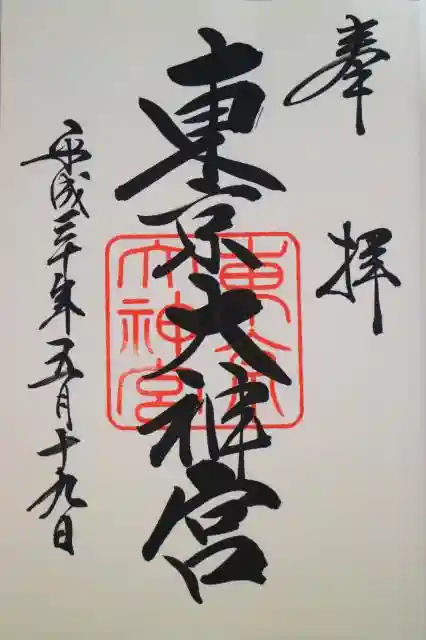 奉拝
東京大神宮
東京大神宮
平成三十年五月十九日